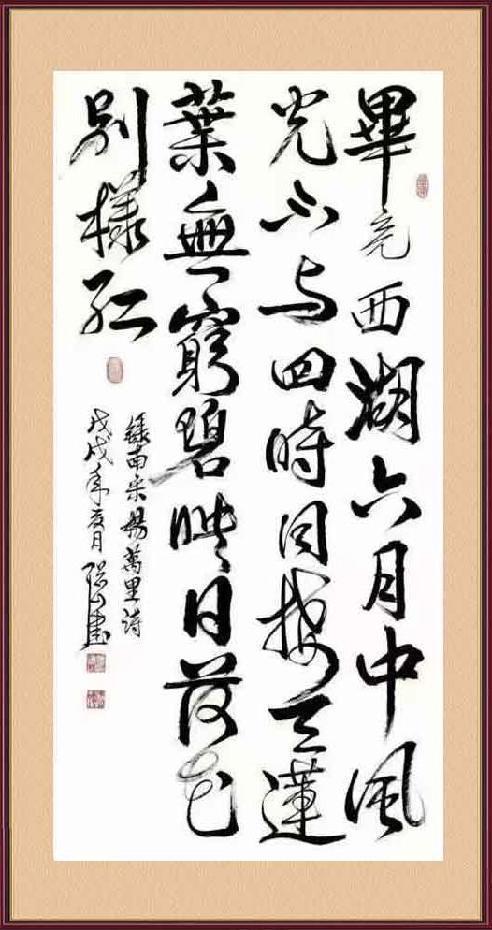 畢竟西湖六月中風
光不与四時同接天蓮
葉無窮碧映日荷花
別樣紅
録南宋楊萬里詩
戊戌年夏月書